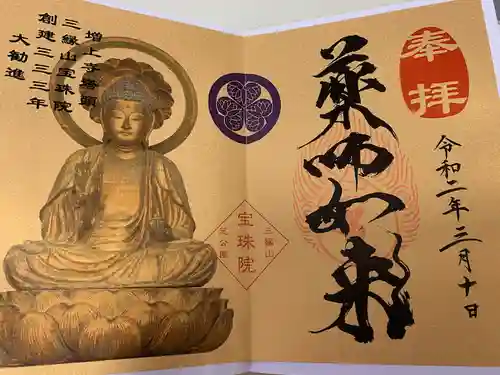 奉拝
令和二年三月十日
薬師如来
三縁山
宝珠院
芝公園
増上寺塔頭
三縁山宝珠院
創建三三三年
大勧進